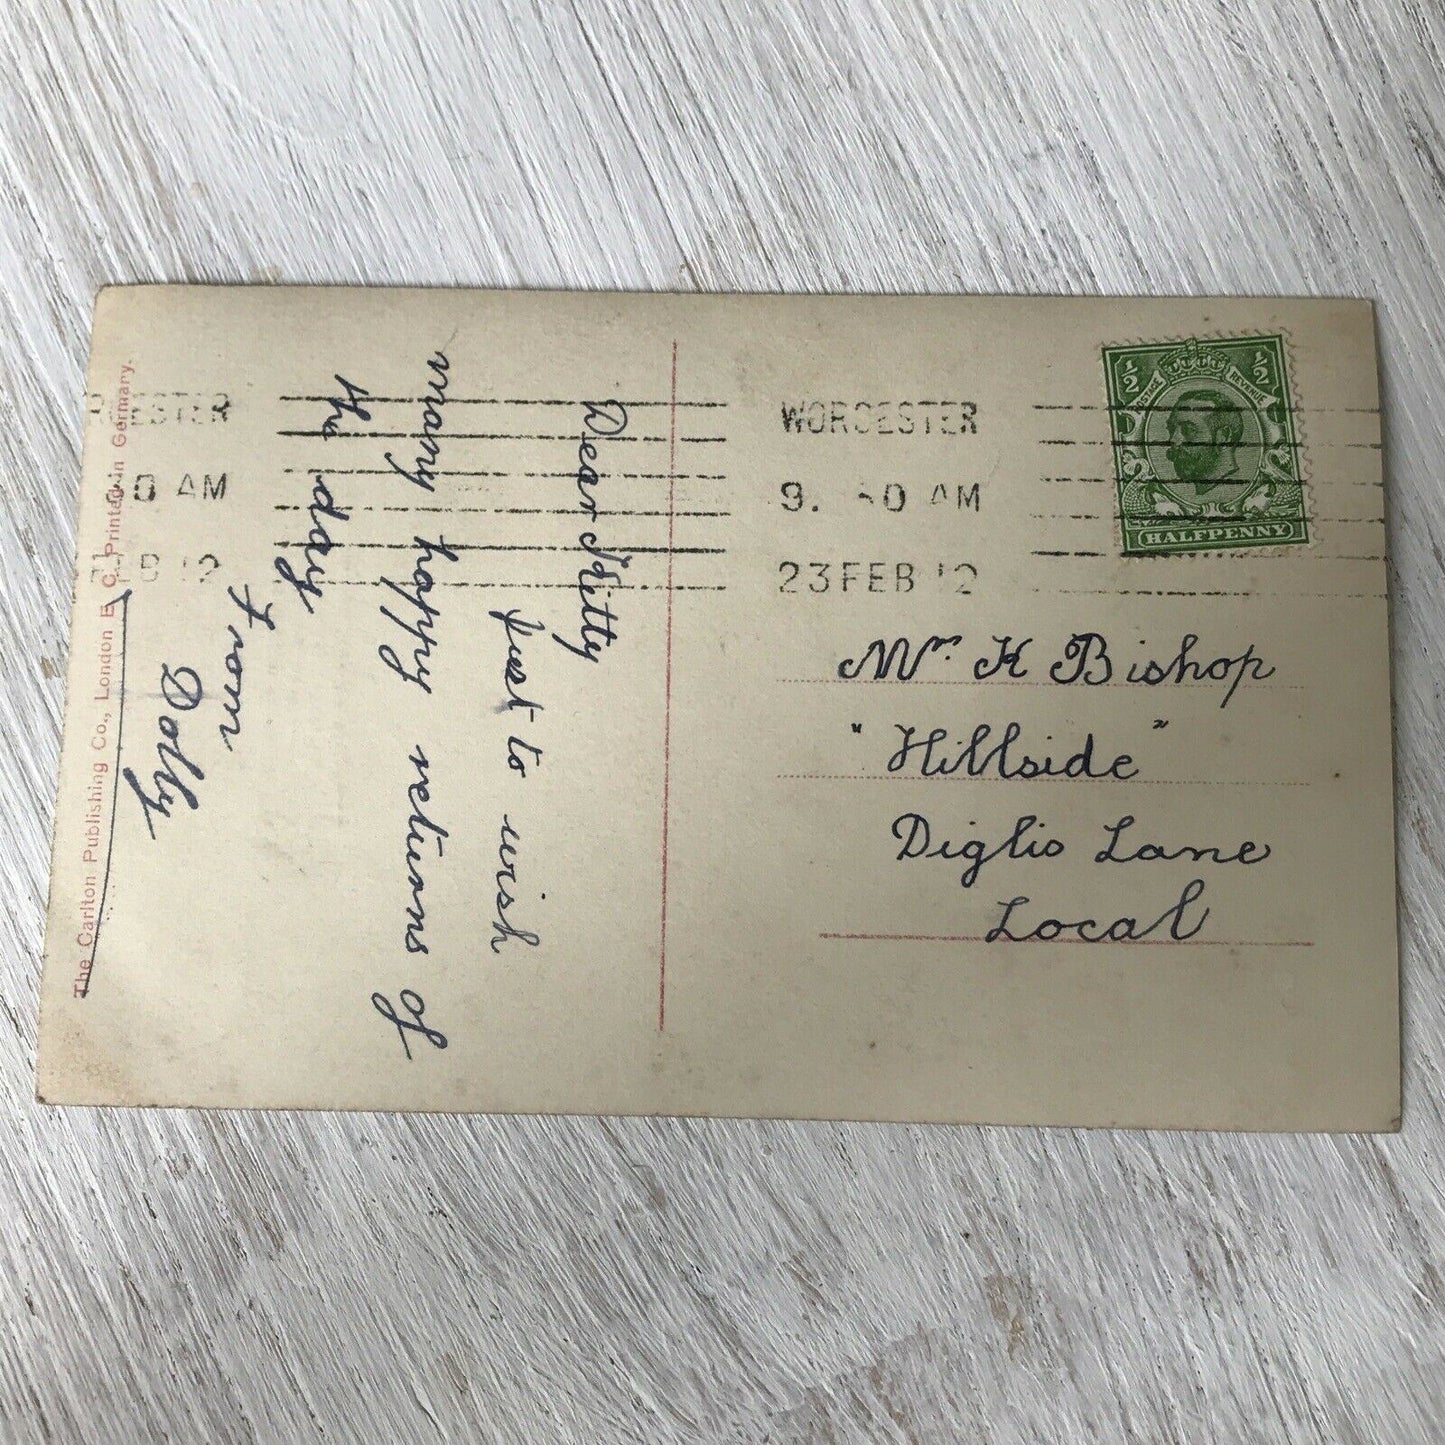 The Carlton Publishing Co., London E.C. Printed in Germany.
Dear Kitty
Just to wish
many happy returns of
the day
From
Dolly
WORCESTER
AM
WORCESTER
9. 0 AM
23 FEB 12
½ ½
POSTAGE REVENUE
HALFPENNY
Mr. K Bishop
"Hillside"
Diglis Lane
Local